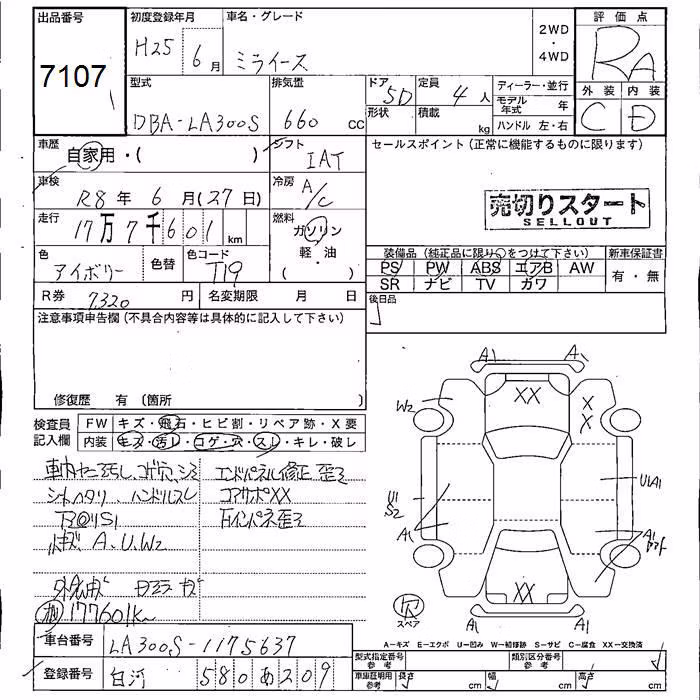 出品番号
7107
初度登録年月
H25 6月
車名・グレード
ミライース
2WD
・
4WD
評価点
RA
外装 内装
C D
型式
DBA-LA300S
排気量
660 cc
ドア 5D
形状
定員 4人
積載 kg
ディーラー・並行
モデル年式 年
ハンドル 左・右
車歴
自家用・( )
シフト
IAT
車検
R8年 6月(27日)
冷房 A/C
走行
17万7千601 km
燃料
ガソリン
軽・油
( )
色
アイボリー
色替
色コード
T19
R券 7320円
名変期限 月 日
セールスポイント(正常に機能するものに限ります)
売切りスタート
SELLOUT
装備品(純正品に限り○をつけて下さい)
新車保証書
PS PW ABS エアB AW
SR ナビ TV ガワ
有・無
後日品
注意事項申告欄(不具合内容等は具体的に記入して下さい)
修復歴 有(箇所
検査員
記入欄
FW キズ・飛石・ヒビ割・リペア跡・X要
内装 キズ・汚レ・コゲ・穴・スレ・キレ・破レ
シートヘタリ、ハンドルスレ
A、U、W2
177601k
エンドパネル修正 歪ミ
コアサポXX
下インパネ歪ミ
A1 A1
XX
W2
X
X
U1
S2
A1
U1A1
A1
XX
A1 A1
スペア
A-キズ E-エクボ U-凹ミ W-補修跡 S-サビ C-腐食 XX-交換済
車台番号 LA300S-1175637
登録番号 白河 580 あ 209
型式指定番号
参考
類別区分番号
参考
車庫証明用
参考
長さ cm 幅 cm 高さ cm